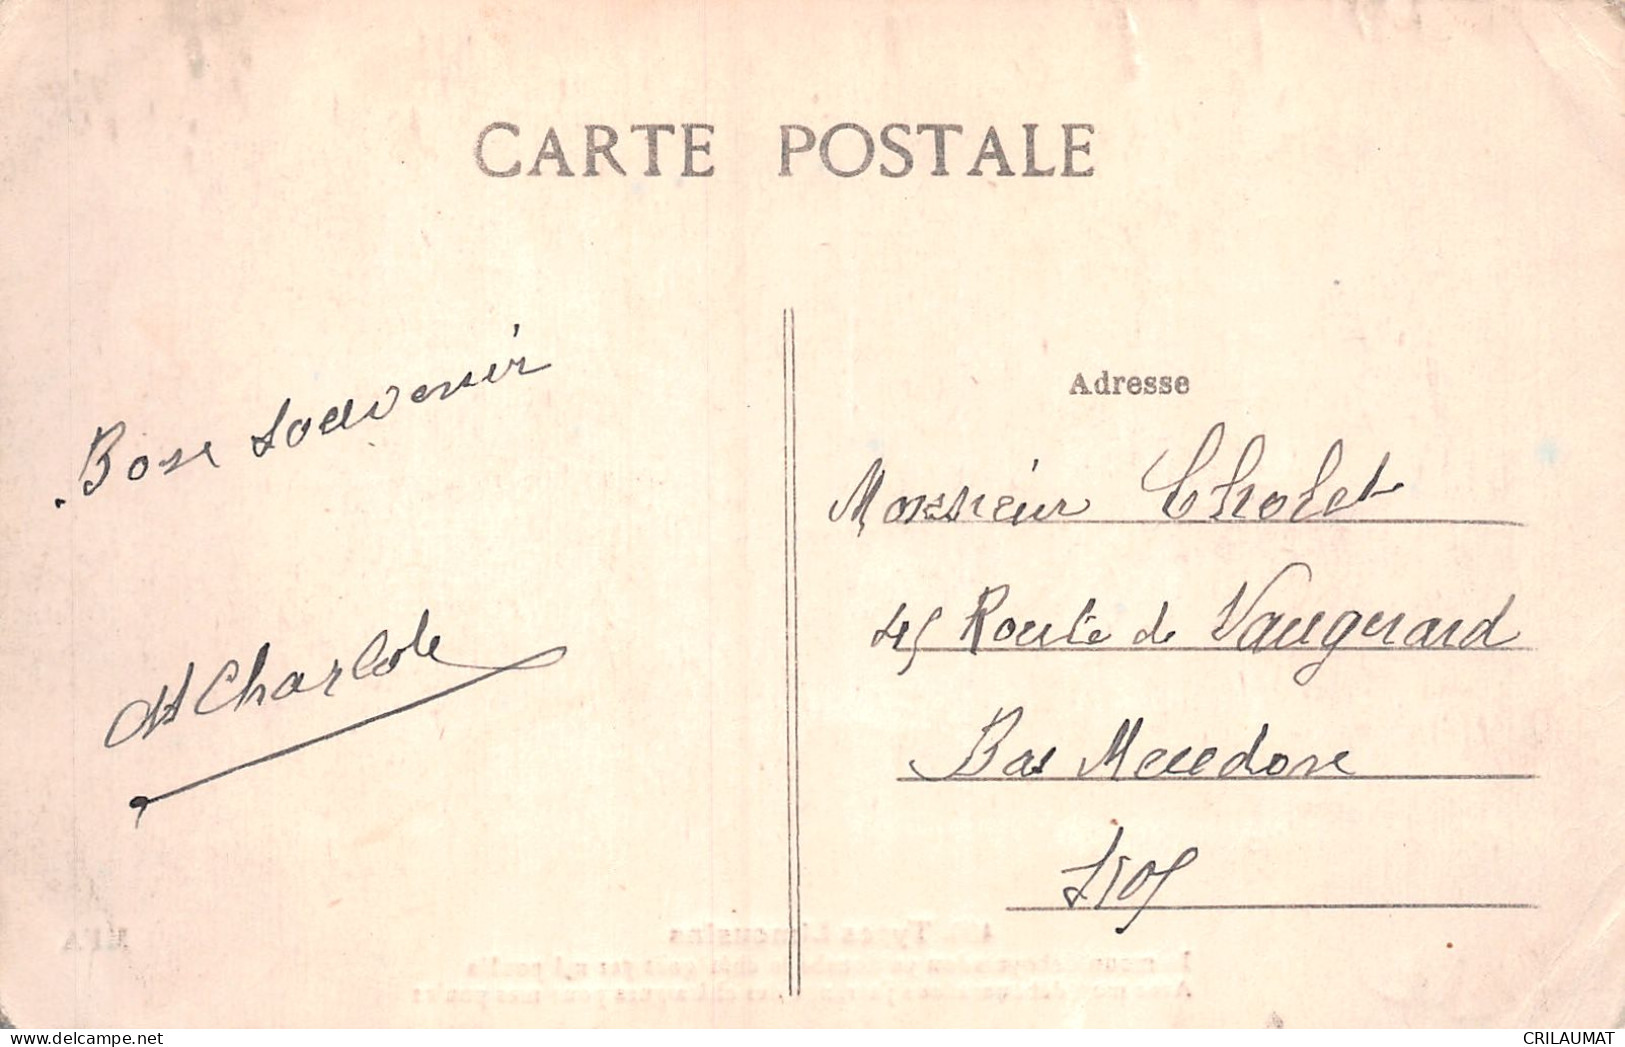 CARTE POSTALE
Bon souvenir
Charlot
Adresse
Monsieur Cholet
45 Route de Vaugirard
Bas Meudon
S/O
Types Limousins
MFA
CRILAUMAT